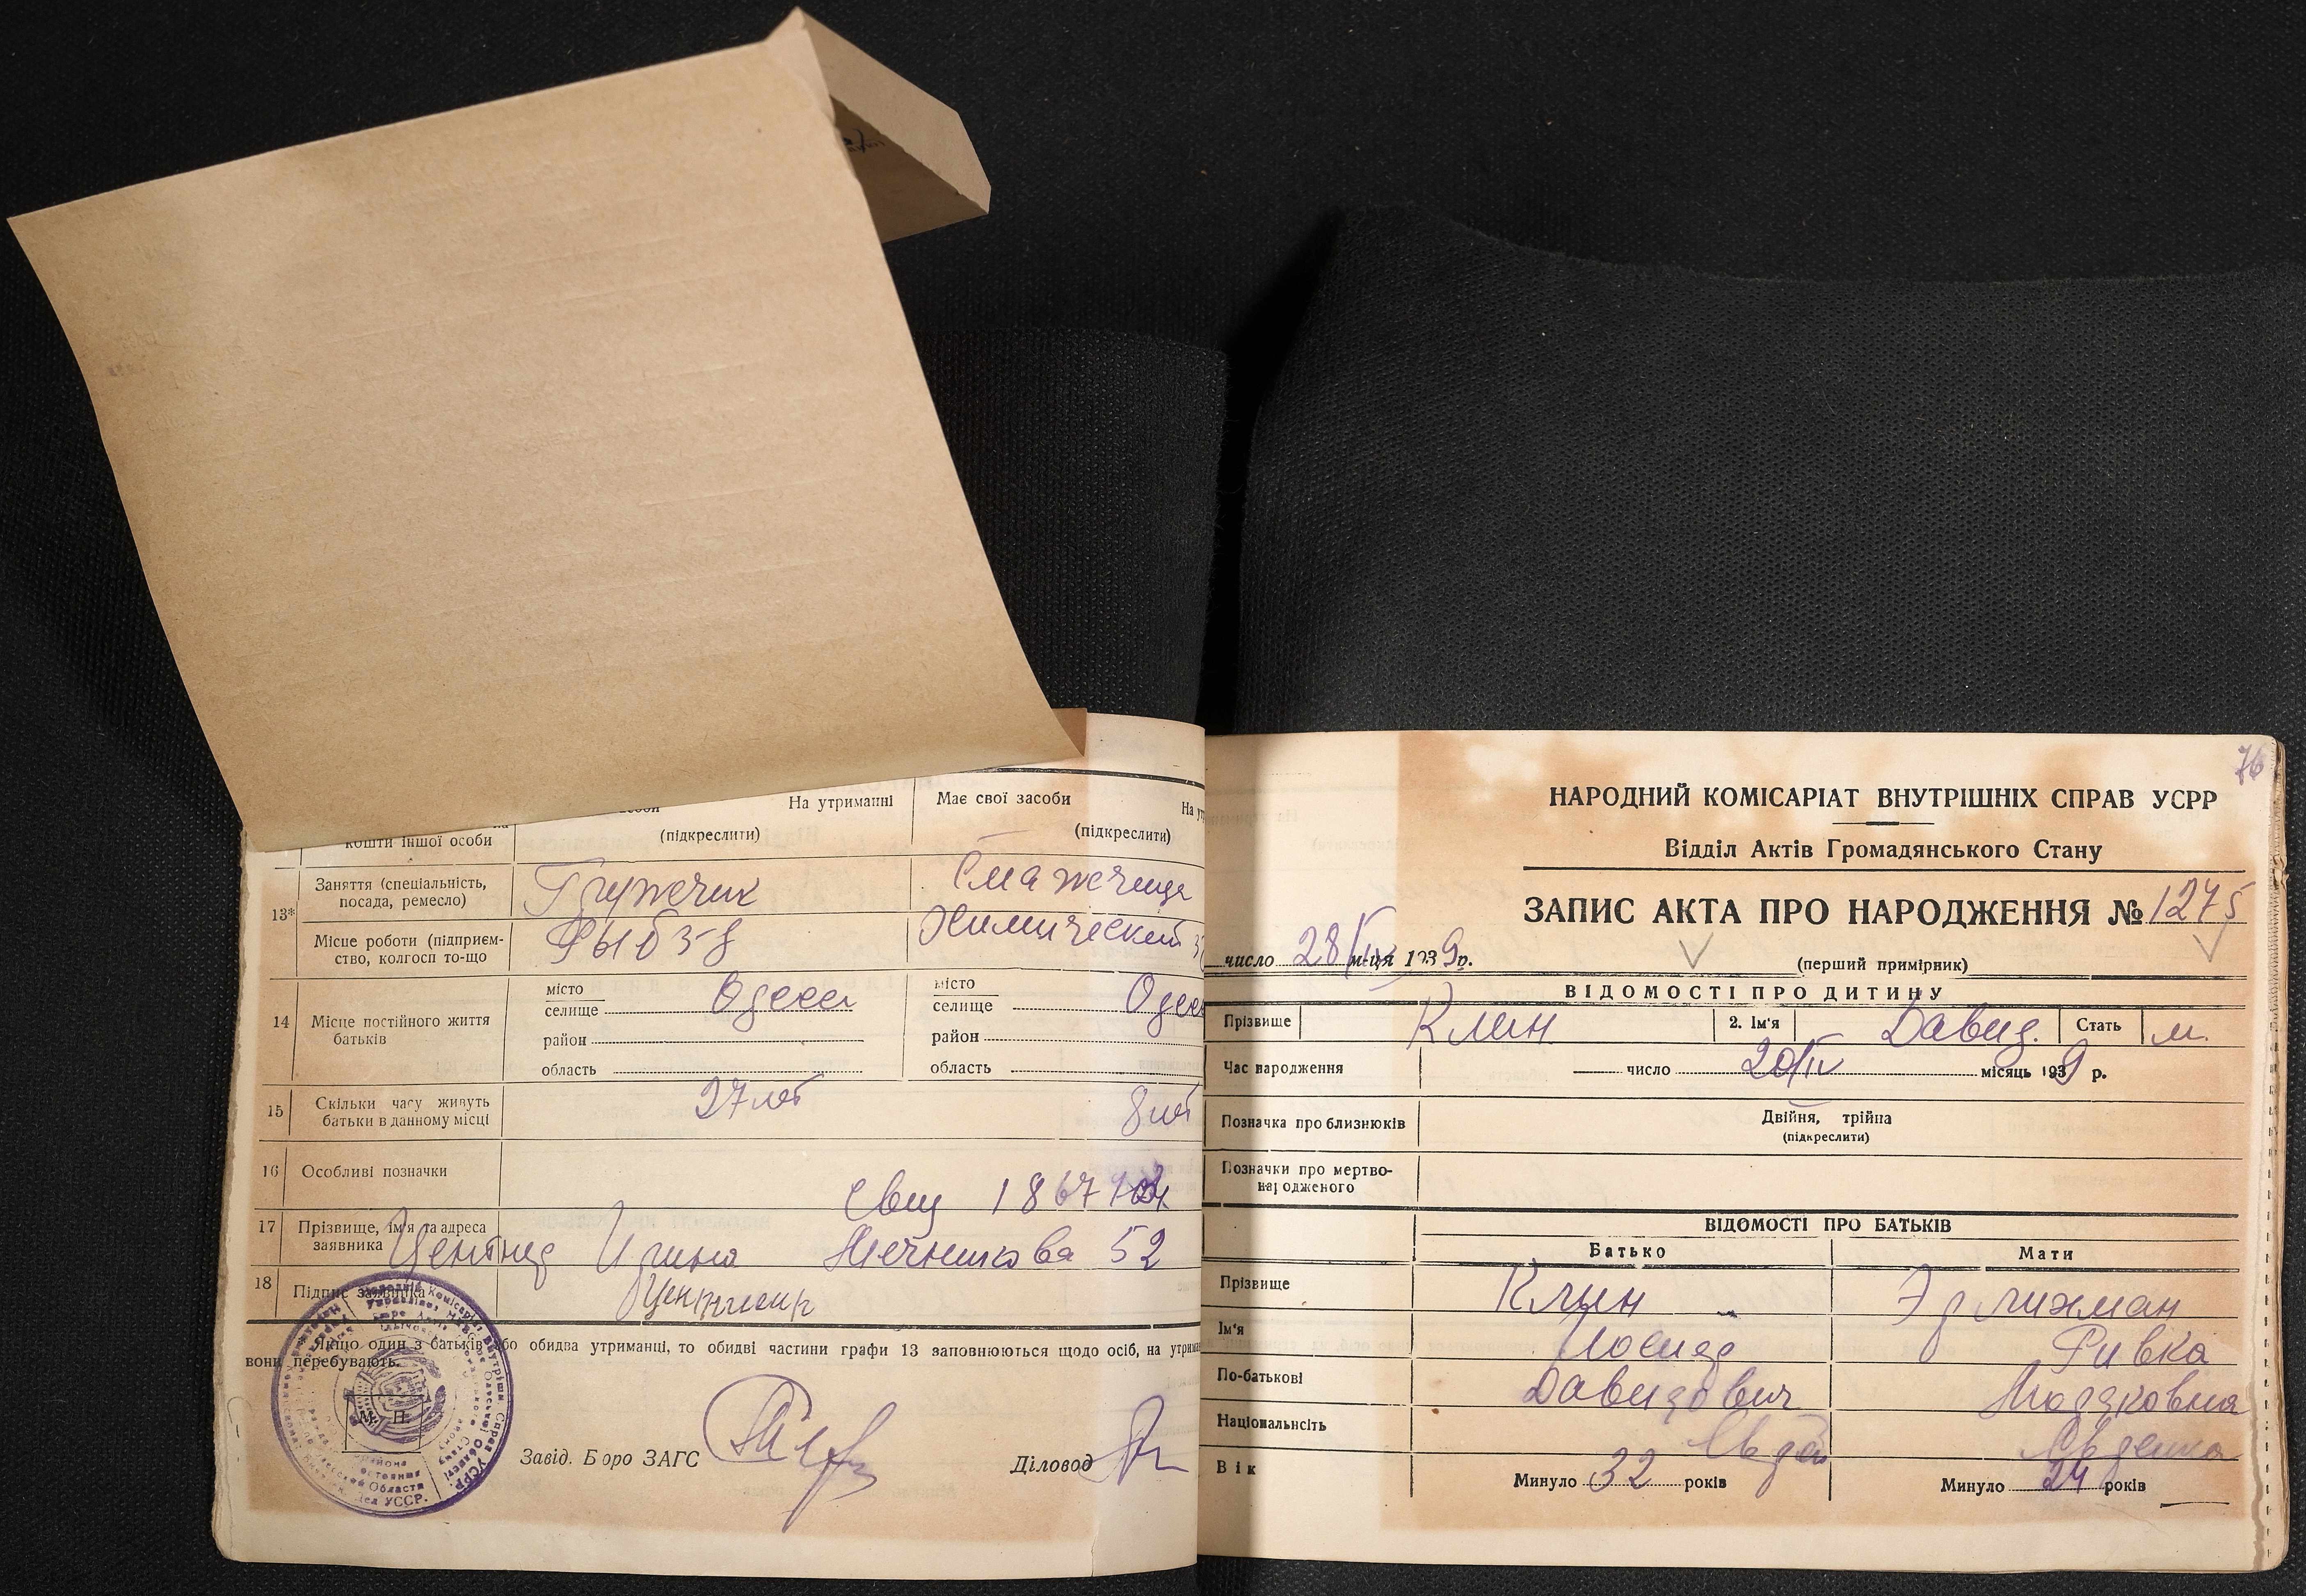 На утриманні
Має свої засоби
кошти іншої особи
(підкреслити)
(підкреслити)
13*
Заняття (спеціальність, посада, ремесло)
Грузчик
Місце роботи (підприєм-
ство, колгосп то-що
Химический
14
Місце постійного життя
батьків
місто
селище
Одесса
район
область
місто
селище
район
область
15
Скільки часу живуть
батьки в данному місці
27 лет
8 лет
16
Особливі позначки
17
Прізвище, ім'я та адреса
заявника
Ирина Мечникова 52
18
Підпис заявника
Якщо один з батьків або обидва утриманці, то обидві частини графи 13 заповнюються щодо осіб, на
вони перебувають.
М. П.
Завід. Бюро ЗАГС
Діловод
76
НАРОДНИЙ КОМІСАРІАТ ВНУТРІШНІХ СПРАВ УСРР
Відділ Актів Громадянського Стану
ЗАПИС АКТА ПРО НАРОДЖЕННЯ № 1275
число 28/IV м-ця 1939 р.
(перший примірник)
ВІДОМОСТІ ПРО ДИТИНУ
Прізвище Клин 2. Ім'я Давид. Стать м.
Час народження число 20/IV місяць 1939 р.
Позначка про близнюків
Двійня, трійня
(підкреслити)
Позначки про мертво-
народженого
ВІДОМОСТІ ПРО БАТЬКІВ
Батько Мати
Прізвище Клин Эрлихман
Ім'я Иосиф Ривка
По-батькові Давидович Мордковна
Національність Еврей Еврейка
Вік Минуло 32 років Минуло 24 років